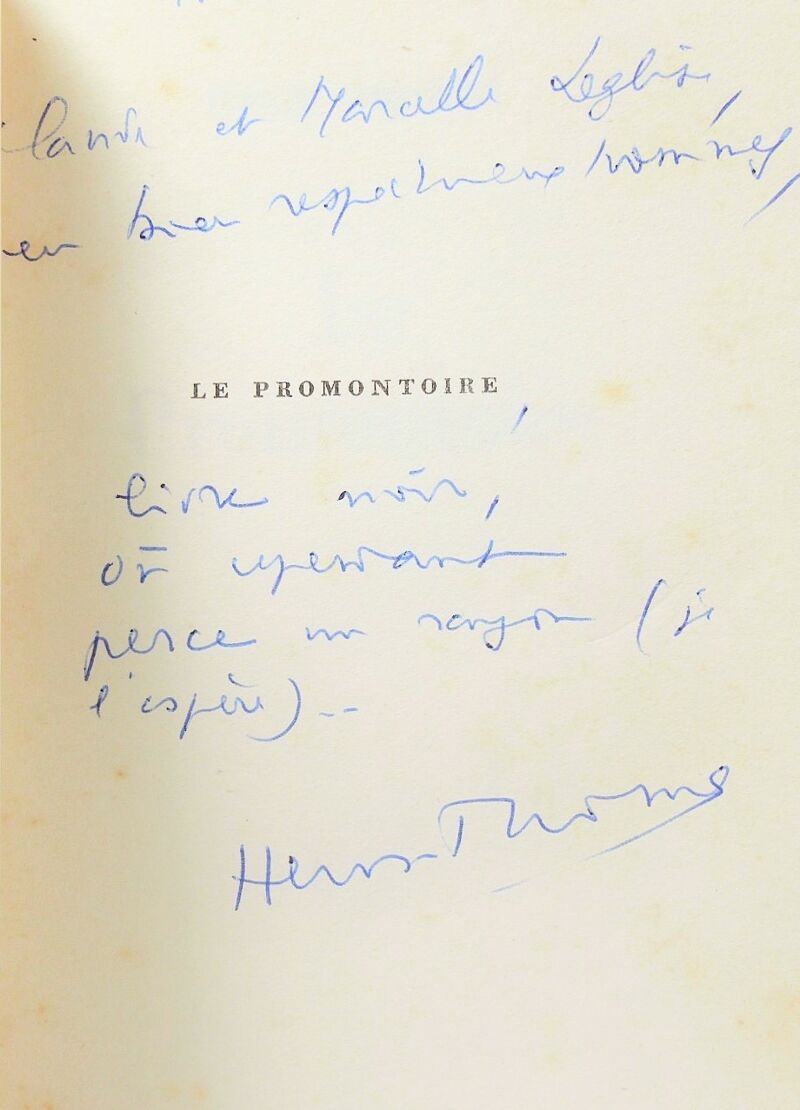 et Marcelle Leglise,
en bien respectueux hommages,
LE PROMONTOIRE,
livre noir,
où cependant
perce un rayon (je
l'espère)...
Henri Thomas